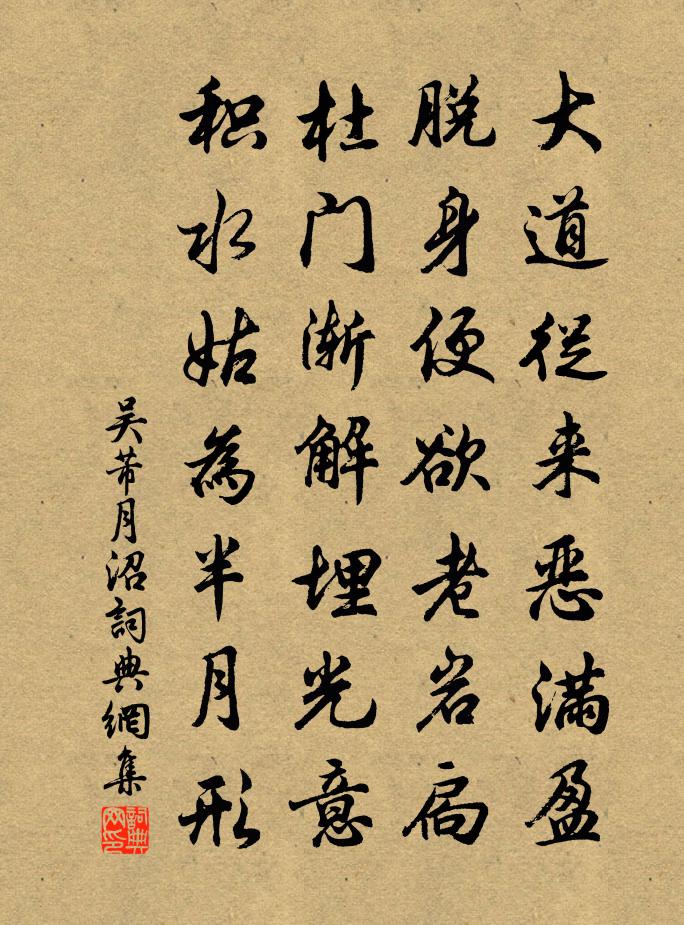 大道從来惡滿盈
脱身便欲老岩扃
杜门渐解埋光意
积水姑為半月形
吴芾月沼詞典網集
詞典网印